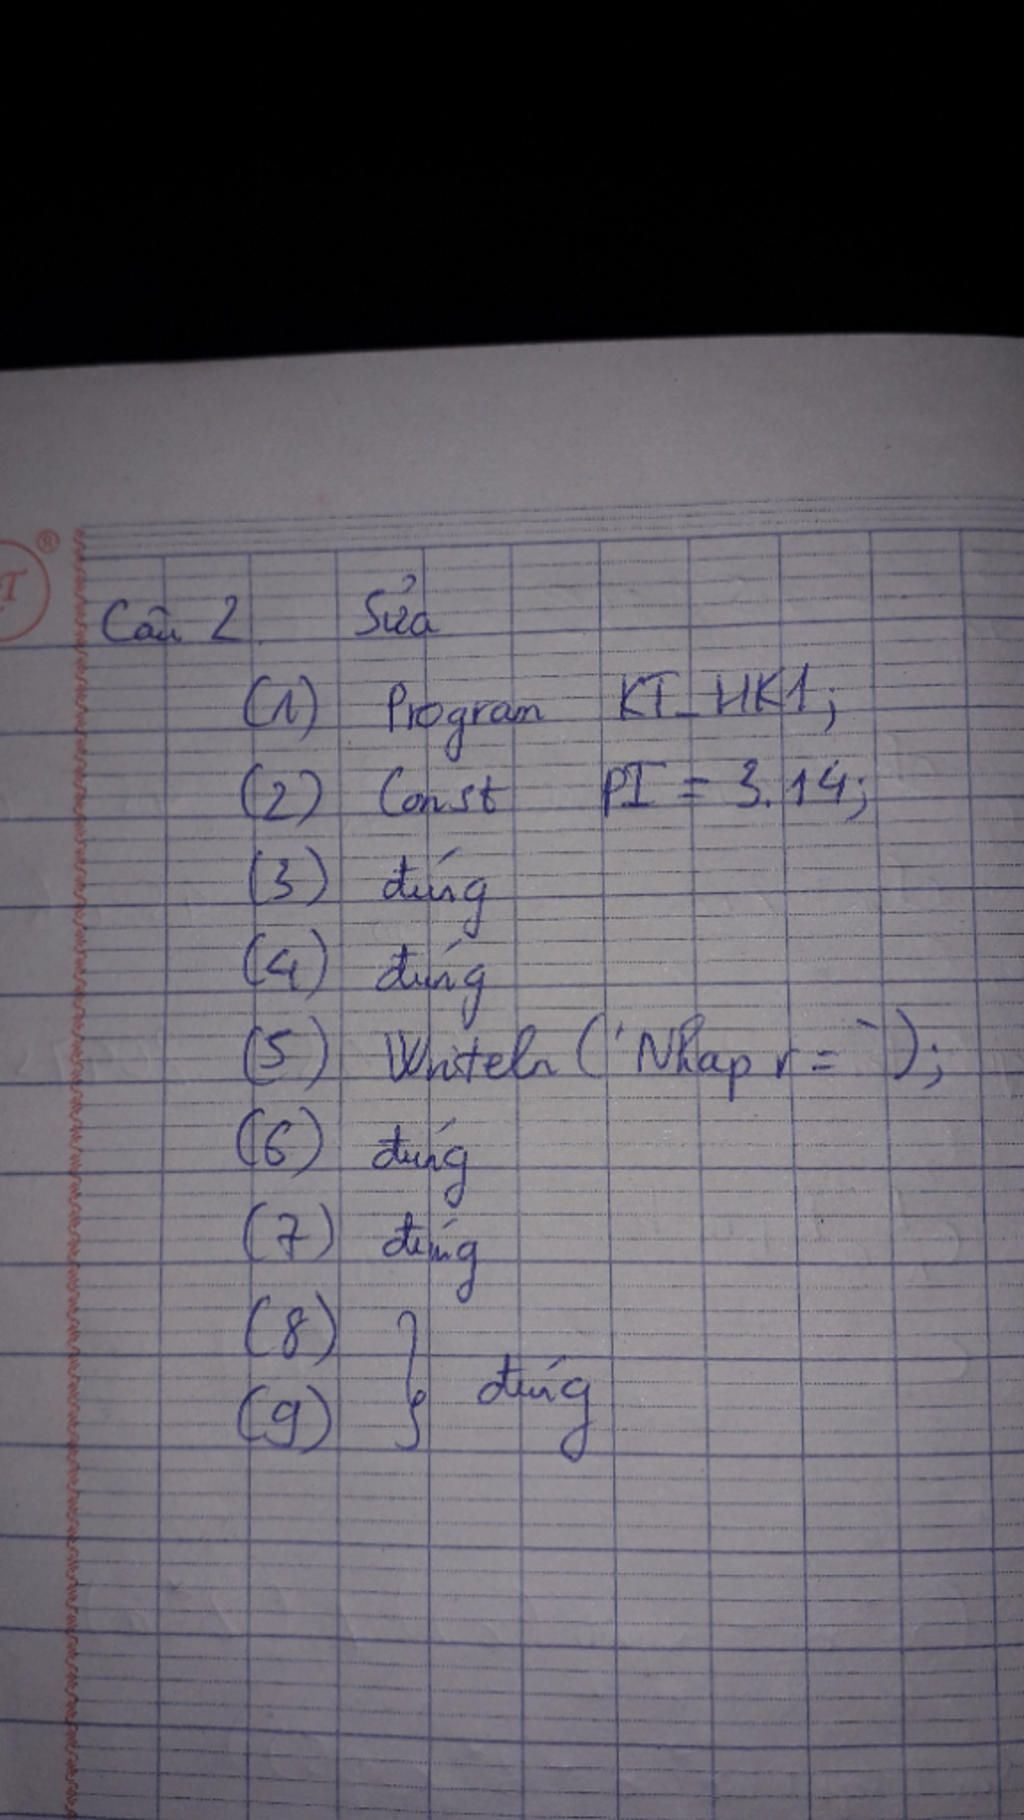 Câu 2. Sửa
(1) Program KT_HK1;
(2) Const PI = 3.14;
(3) đúng
(4) đúng
(5) Writeln ('Nhap r = ');
(6) đúng
(7) đúng
(8)
(9) } đúng
®